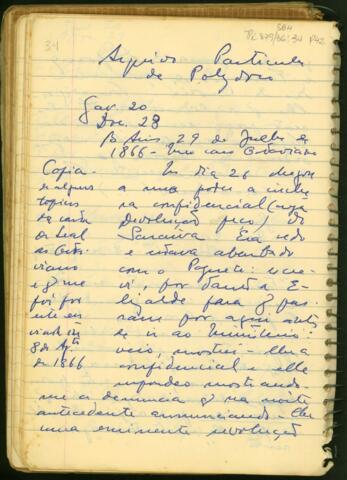 34
SBH
Pi 279/86:34 P42
Arquivo Particular
de Polydoro
Gav. 20
Doc. 28
B. Aires 29 de Julho de
1866 - Meu caro Octaviano
Copia -
de alguns
topicos
da carta
de Leal
ao Octa-
viano
e q me
foi por
este en-
viada em
8 de Agto
de 1866
No dia 26 chegou
a meu poder a inclu
sa confidencial (cuja
devolução peço) do
Saraiva. Era cedo
e estava abarbado
com o Paquete: escre-
vi, por tanto a E-
lizalde para q pas
sasse por aqui antes
de ir ao Ministerio:
veio, mostrei-lhe a
confidencial e elle
respondeo mostrando
me a denuncia q na noite
antecedente annunciando-lhe
uma eminente revolução